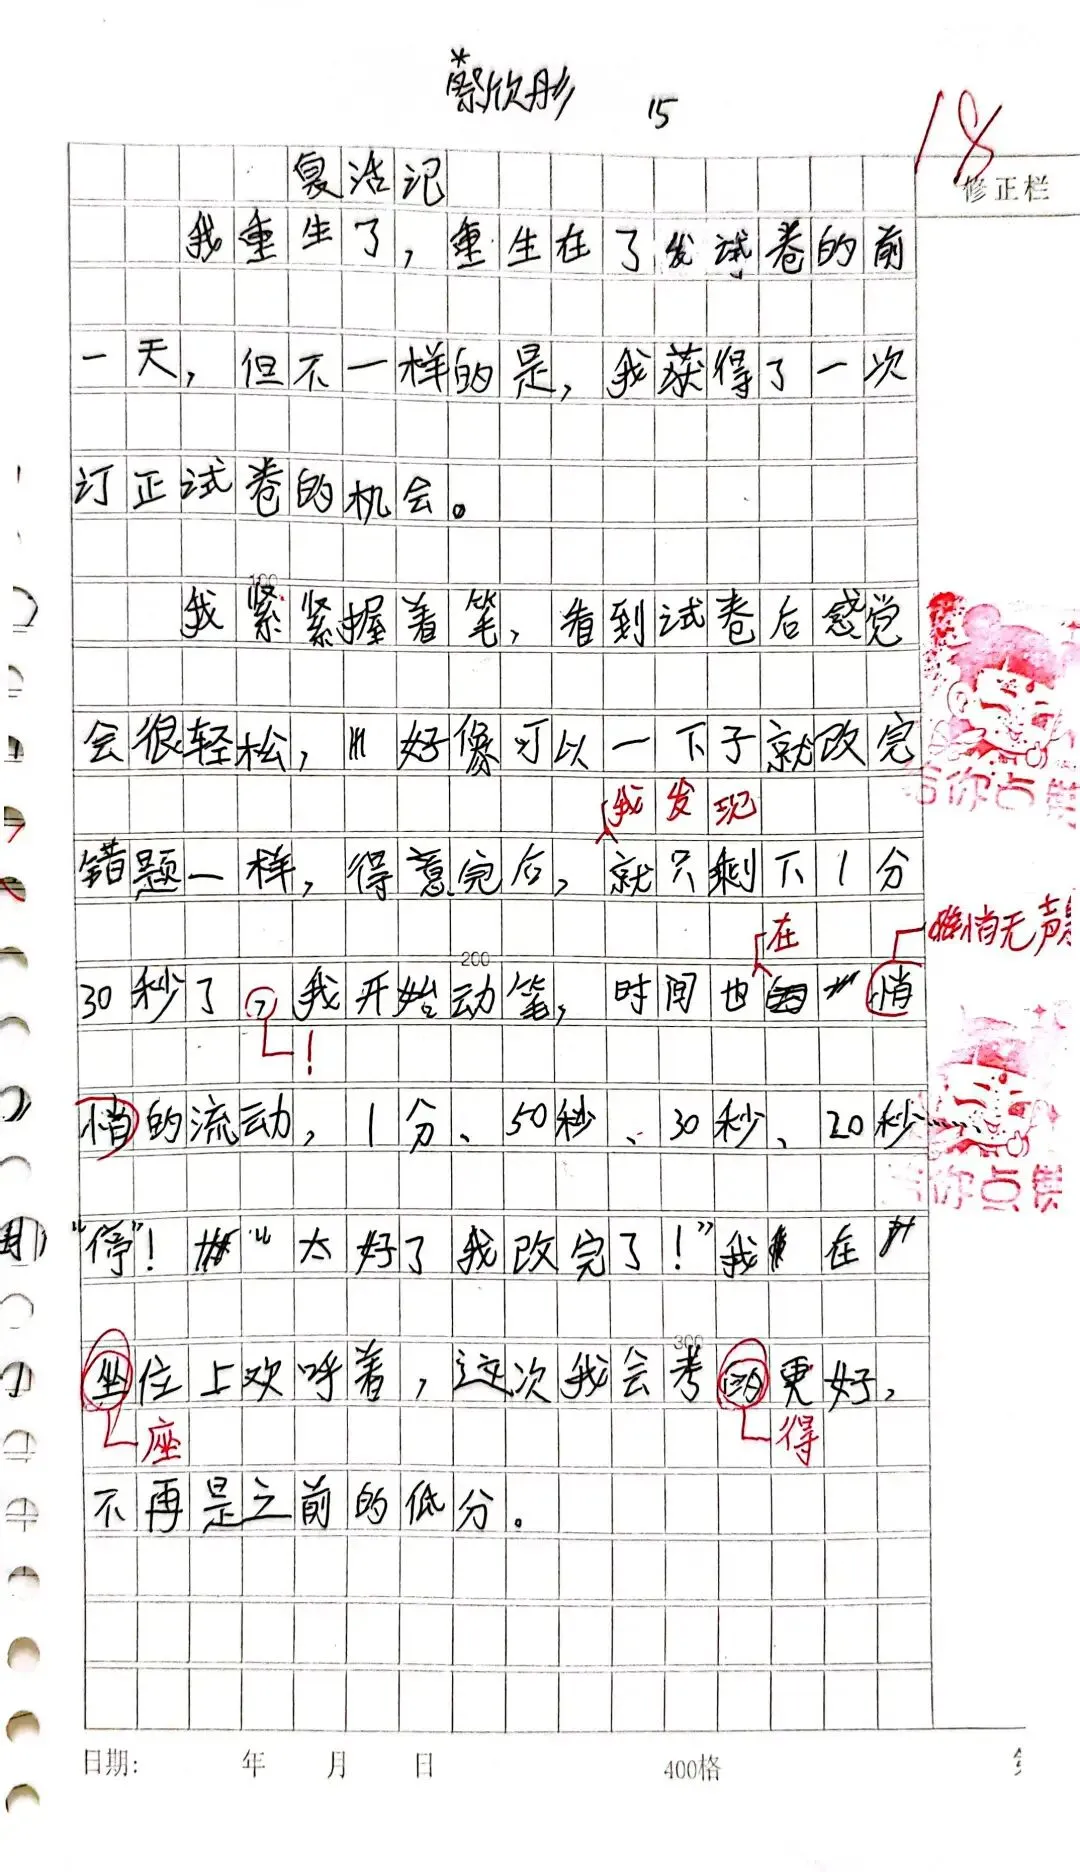 蔡欣彤 15
18
修正栏
复活记
我重生了，重生在了发试卷的前
一天，但不一样的是，我获得了一次
订正试卷的机会。
100
我紧紧握着笔，看到试卷后感觉
会很轻松，好像可以一下子就改完
我发现
错题一样，得意完后，就只剩下1分
给你点赞
在
悄无声
200
30秒了，我开始动笔，时间也悄
！
悄的流动，1分、50秒、30秒、20秒……
给你点赞
“停”！“太好了我改完了！”我在
300
坐位上欢呼着，这次我会考的更好，
座 得
不再是之前的低分。
日期： 年 月 日 400格